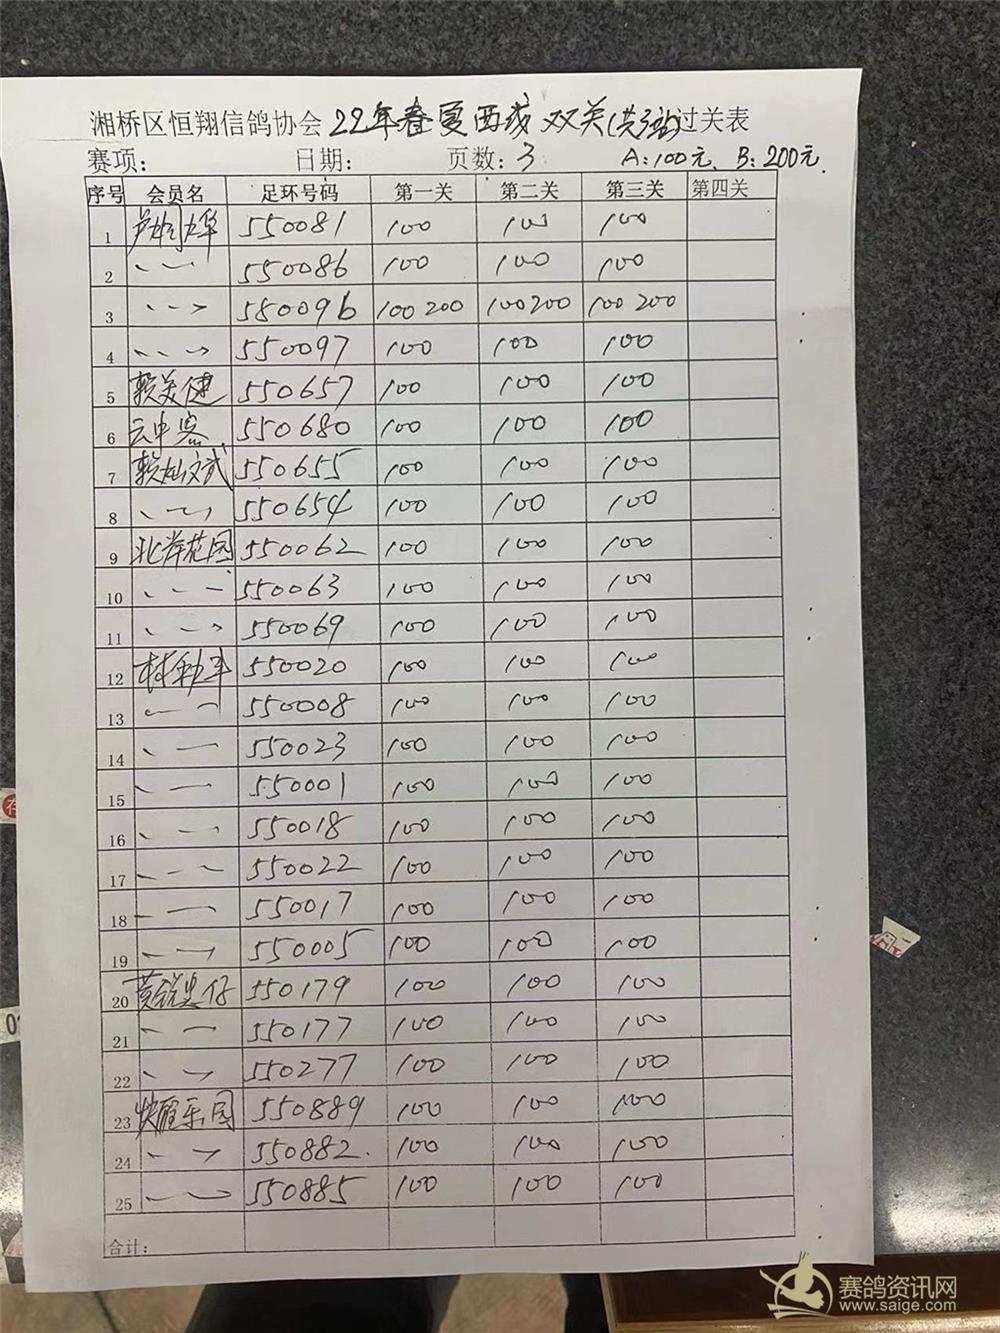 湘桥区恒翔信鸽协会22年春夏西成双关(共3站)过关表
赛项: 日期: 页数: 3 A:100元、B:200元
序号 会员名 足环号码 第一关 第二关 第三关 第四关
1 550081 100 100 100
2 、、一 550086 100 100 100
3 、、、 550096 100 200 100 200 100 200
4 、、、 550097 100 100 100
5 赖美健 550657 100 100 100
6 云中客 550680 100 100 100
7 赖灿文武 550655 100 100 100
8 、、、 550654 100 100 100
9 北岸花园 550062 100 100 100
10 、、一 550063 100 100 100
11 、、、 550069 100 100 100
12 550020 100 100 100
13 、一 550008 100 100 100
14 、一 550023 100 100 100
15 、一 550001 100 100 100
16 、、一 550018 100 100 100
17 、、一 550022 100 100 100
18 、一 550017 100 100 100
19 、一 550005 100 100 100
20 550179 100 100 100
21 、一 550177 100 100 100
22 、、 550277 100 100 100
23 乐园 550889 100 100 100
24 、、 550882. 100 100 100
25 、一 550885 100 100 100
合计:
赛鸽资讯网
www.saige.com